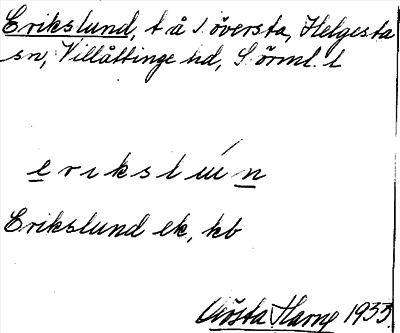 Erikslund, t å S. översta, Helgesta
sn, Villåttinge hd, Sörml. l
erikslun
Erikslund ek, kb
Gösta Harne 1933.